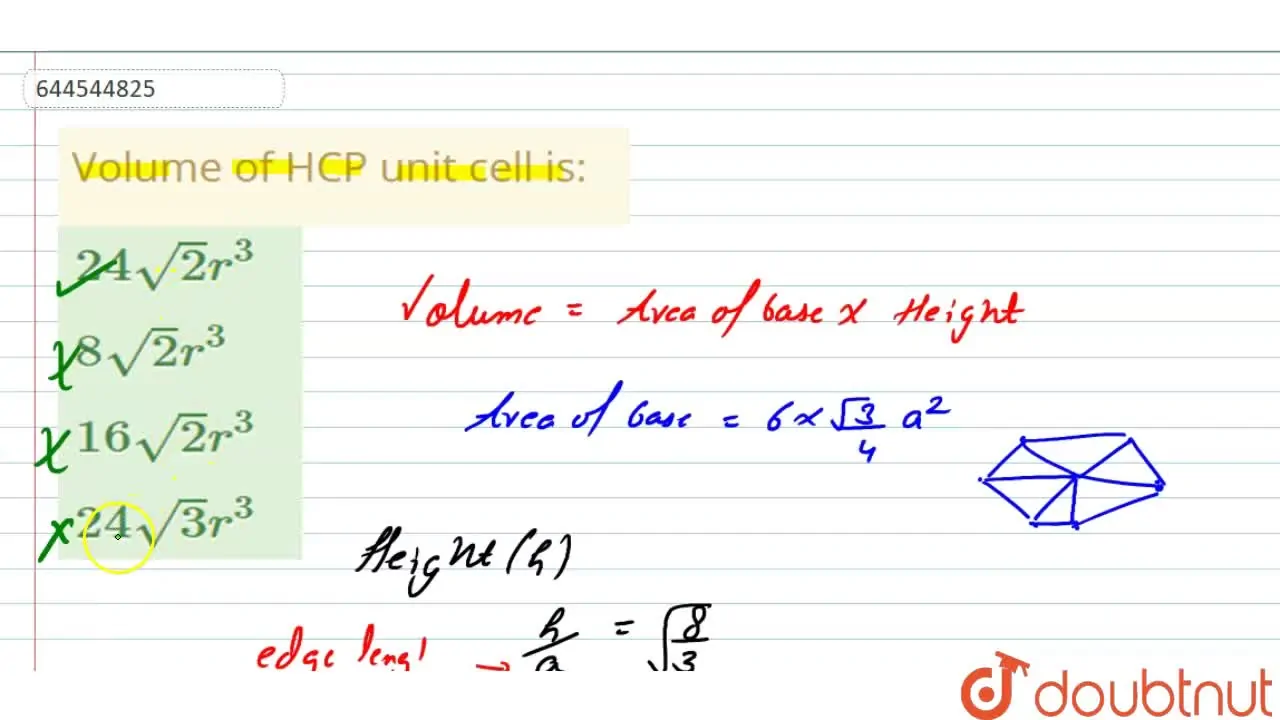 644544825
Volume of HCP unit cell is:
24√2r³
8√2r³
16√2r³
24√3r³
Volume = Area of base x Height
Area of base = 6 x √3/4 a²
Height (h)
h/a = √8/3
edge lengt →
doubtnut